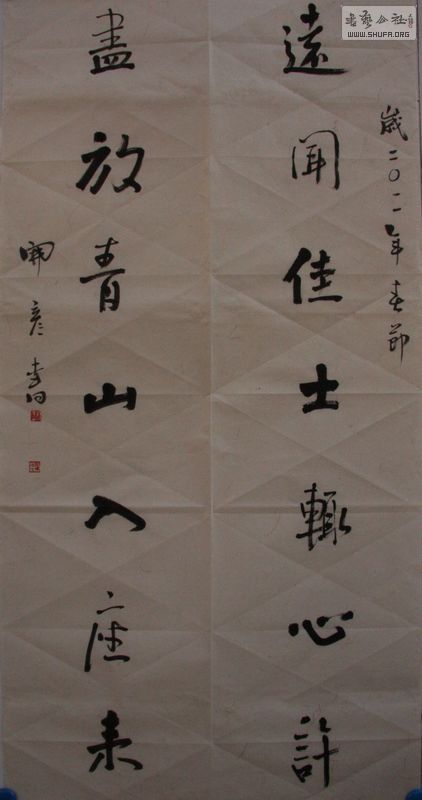 書藝公社
WWW.SHUFA.ORG
歲二〇一一年春節
遠聞佳士輙心計
盡放青山入座来
開彦